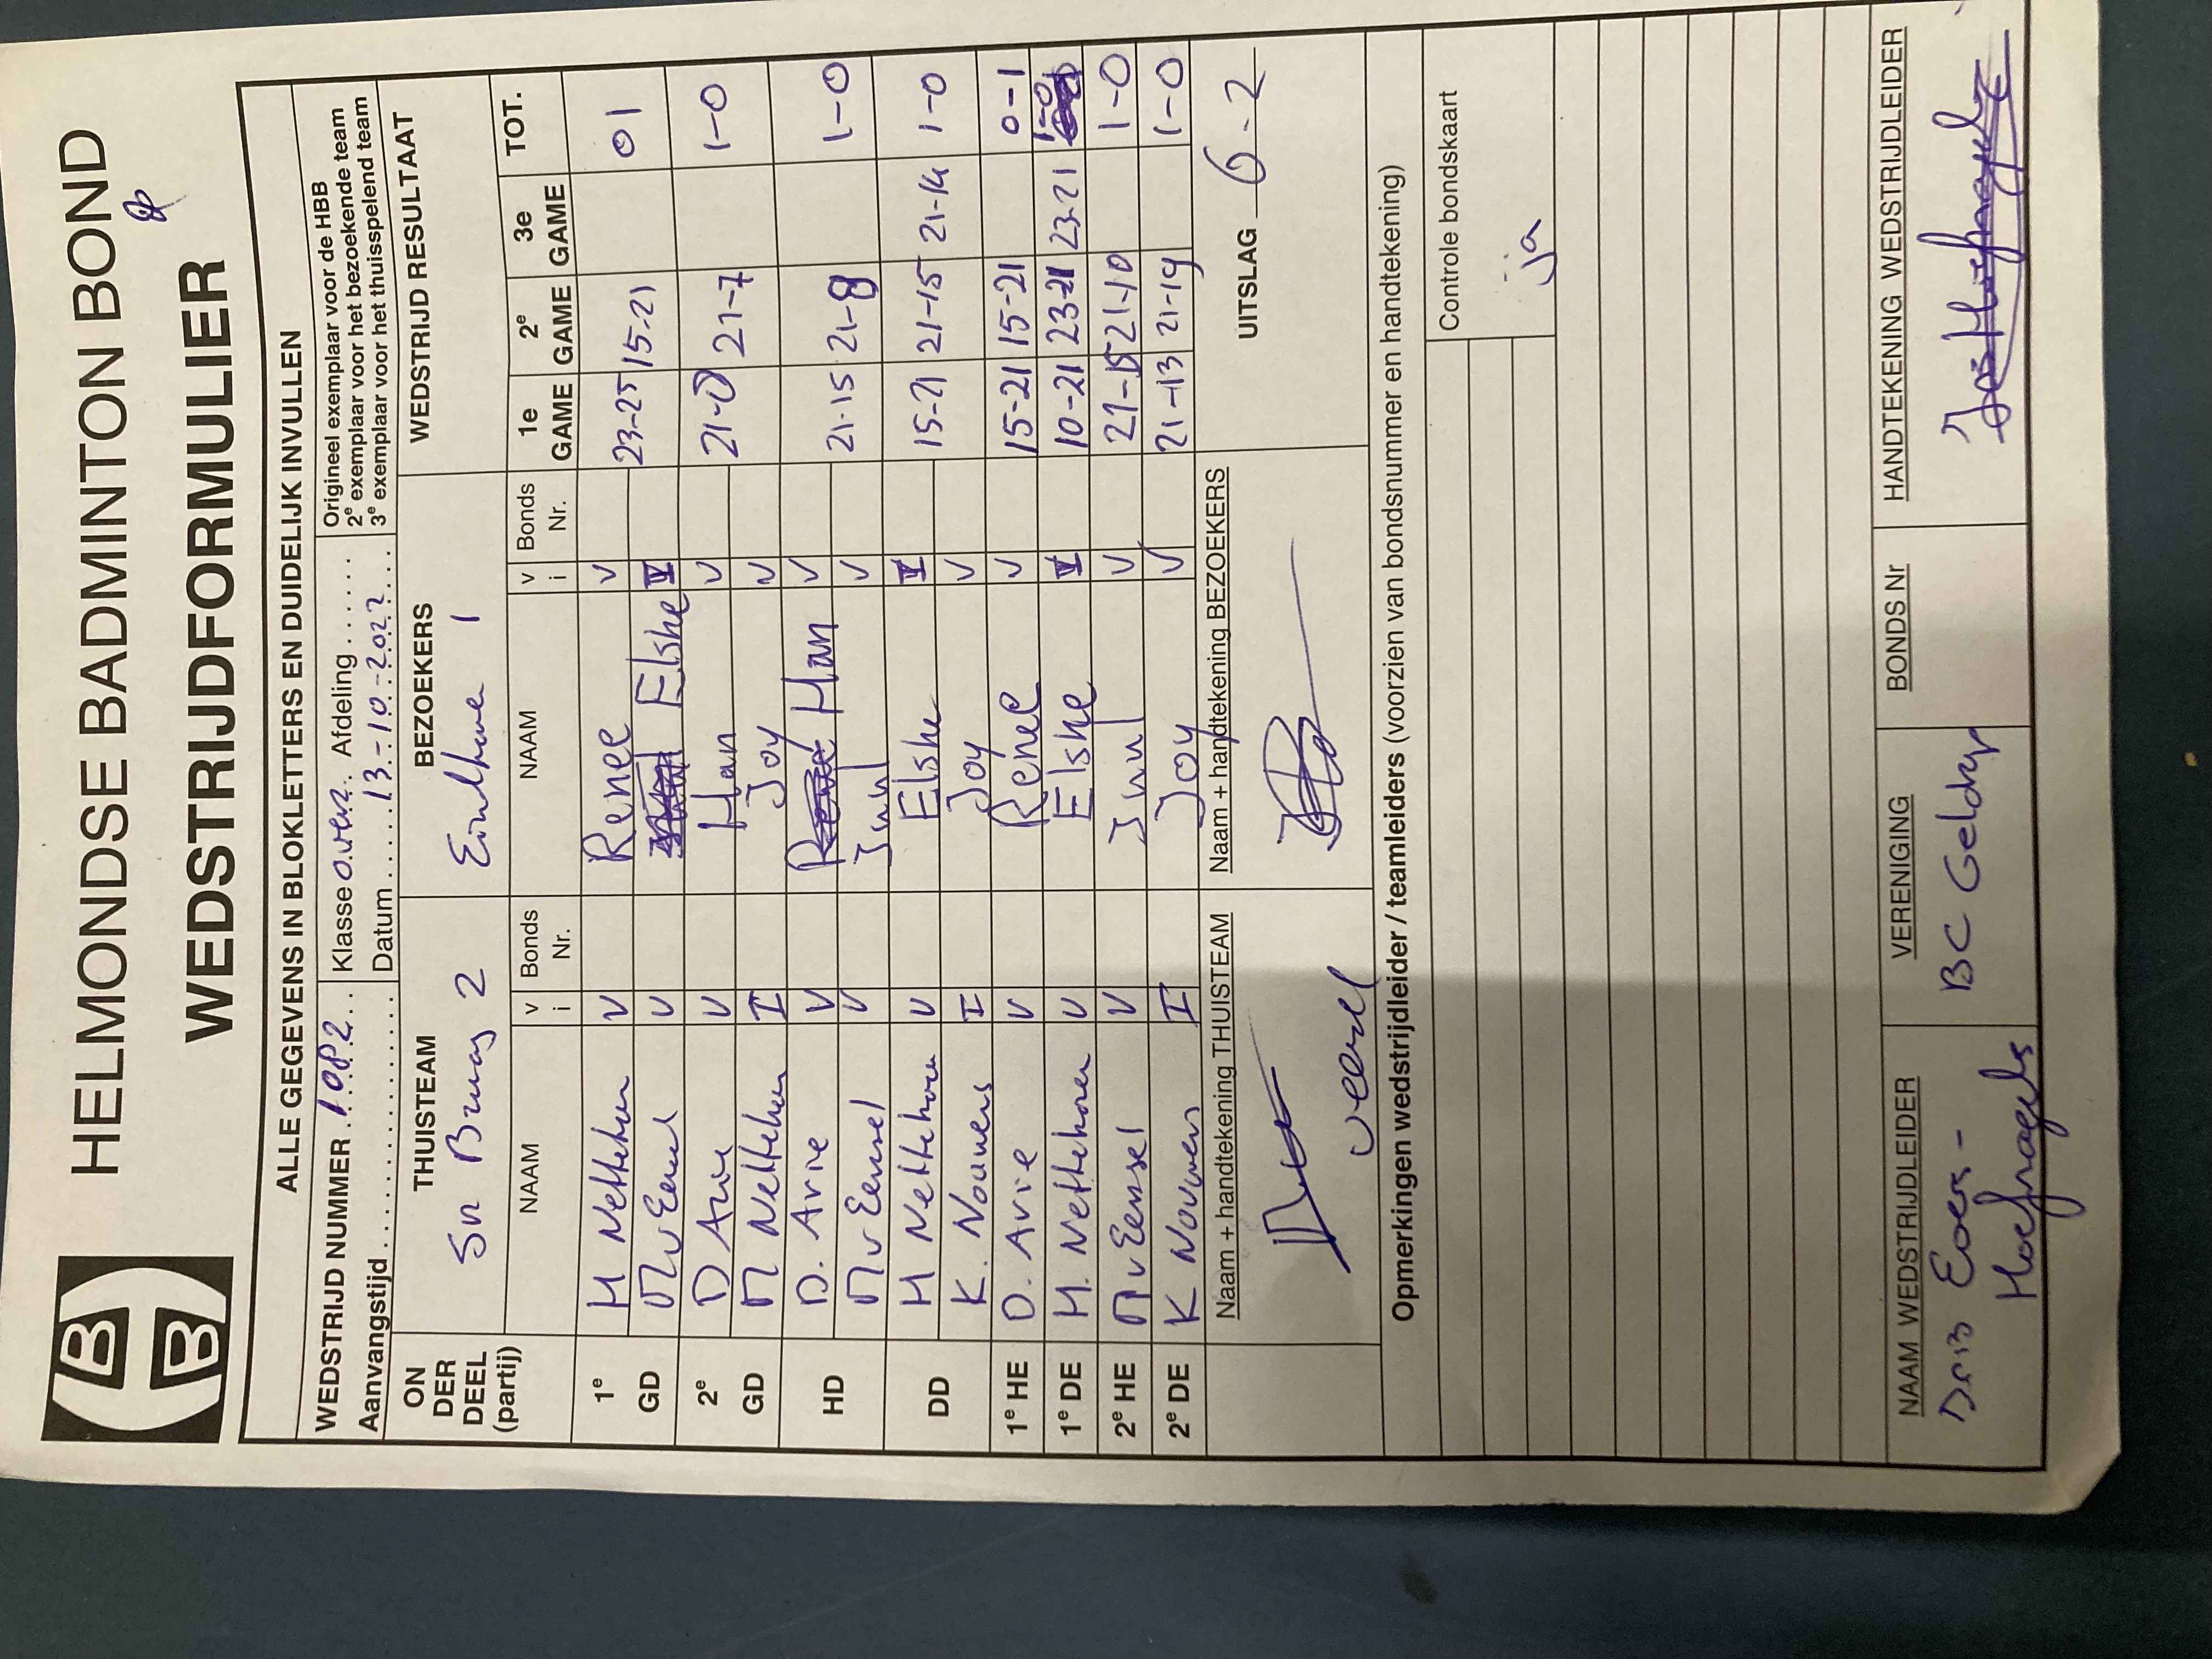 HELMONDSE BADMINTON BOND
WEDSTRIJDFORMULIER
ALLE GEGEVENS IN BLOKLETTERS EN DUIDELIJK INVULLEN
WEDSTRIJD NUMMER 1082
Aanvangstijd
Klasse Afdeling
Datum 13-10-2022
Origineel exemplaar voor de HBB
2e exemplaar voor het bezoekende team
3e exemplaar voor het thuisspelend team
ON DER DEEL (partij)
THUISTEAM
2
BEZOEKERS
1
WEDSTRIJD RESULTAAT
NAAM v i Bonds Nr. NAAM v i Bonds Nr. 1e GAME 2e GAME 3e GAME TOT.
1e GD M V Renee V 23-25 15-21 0 1
V Elske V
2e GD D V Han V 21-7 1-0
M I Joy V
HD D. Arie V Han V 21-15 21-8 1-0
M v Eensel V V
DD M Nettehoven V Elske V 15-21 21-15 21-14 1-0
K. Nouwens I Joy V
1e HE D. Arie V Renee V 15-21 15-21 0-1
1e DE M. Nettehoven V Elske V 10-21 23-21 23-21 1-0
2e HE M v Eensel V V 21-15 21-10 1-0
2e DE K Nouwens I Joy V 21-13 21-19 1-0
Naam + handtekening THUISTEAM
Naam + handtekening BEZOEKERS
UITSLAG 6-2
Opmerkingen wedstrijdleider / teamleiders (voorzien van bondsnummer en handtekening)
Controle bondskaart
ja
NAAM WEDSTRIJDLEIDER
VERENIGING
BONDS Nr
HANDTEKENING WEDSTRIJDLEIDER
Hoefnagels
BC Geldrop